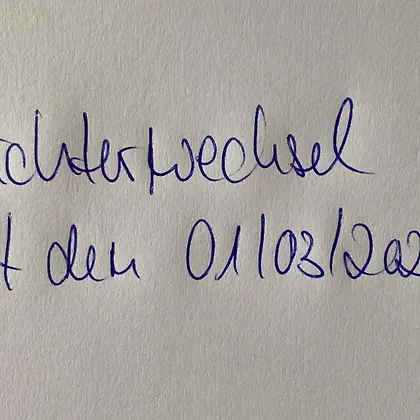 ichterwechsel
t den 01/03/202